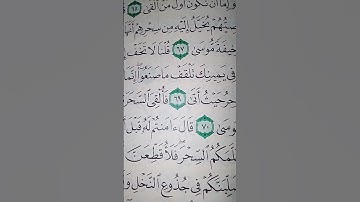 وَإِمَّا أَن نَّكُونَ أَوَّلَ مَنْ أَلْقَىٰ ٦٥
صِيُّهُمْ يُخَيَّلُ إِلَيْهِ مِن سِحْرِهِمْ أَنَّهَا
خِيفَةً مُّوسَىٰ ٦٧ قُلْنَا لَا تَخَفْ
فِي يَمِينِكَ تَلْقَفْ مَا صَنَعُوا إِنَّمَا
حِرُ حَيْثُ أَتَىٰ ٦٩ فَأُلْقِيَ السَّحَرَ
وسَىٰ ٧٠ قَالَ ءَامَنتُمْ لَهُ قَبْلَ
لَّمَكُمُ السِّحْرَ فَلَأُقَطِّعَنَّ
لِّبَنَّكُمْ فِي جُذُوعِ النَّخْلِ وَ